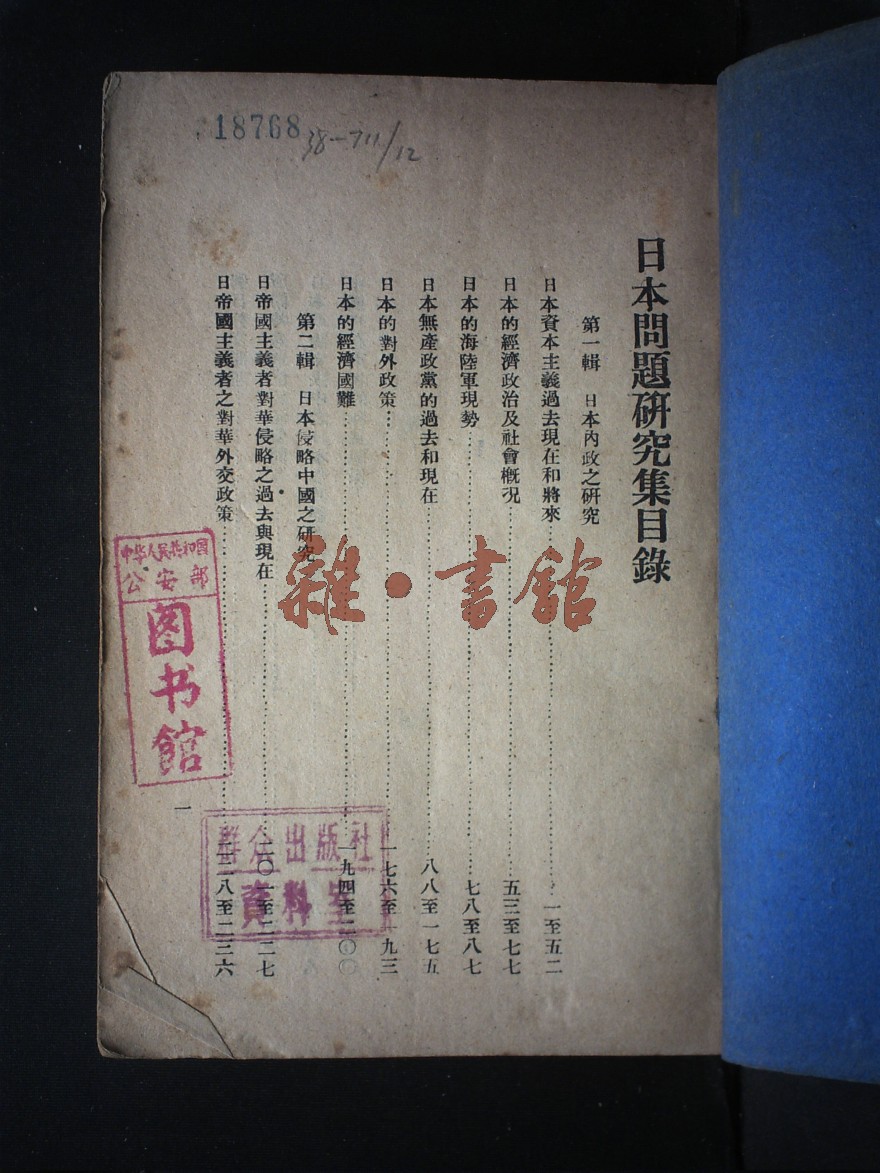 18768
38-711/12
日本問題研究集目錄
第一輯 日本內政之研究
日本資本主義過去現在和將來……一至五二
日本的經濟政治及社會概况……五三至七七
日本的海陸軍現勢……七八至八七
日本無產政黨的過去和現在……八八至一七五
日本的對外政策……一七六至一九三
日本的經濟國難……一九四至二〇〇
第二輯 日本侵略中國之研究
日帝國主義者對華侵略之過去與現在……二〇一至二二七
日帝國主義者之對華外交政策……二二八至二三六
一
中华人民共和国
公安部
图书馆
群众出版社
資料室
雜·書館